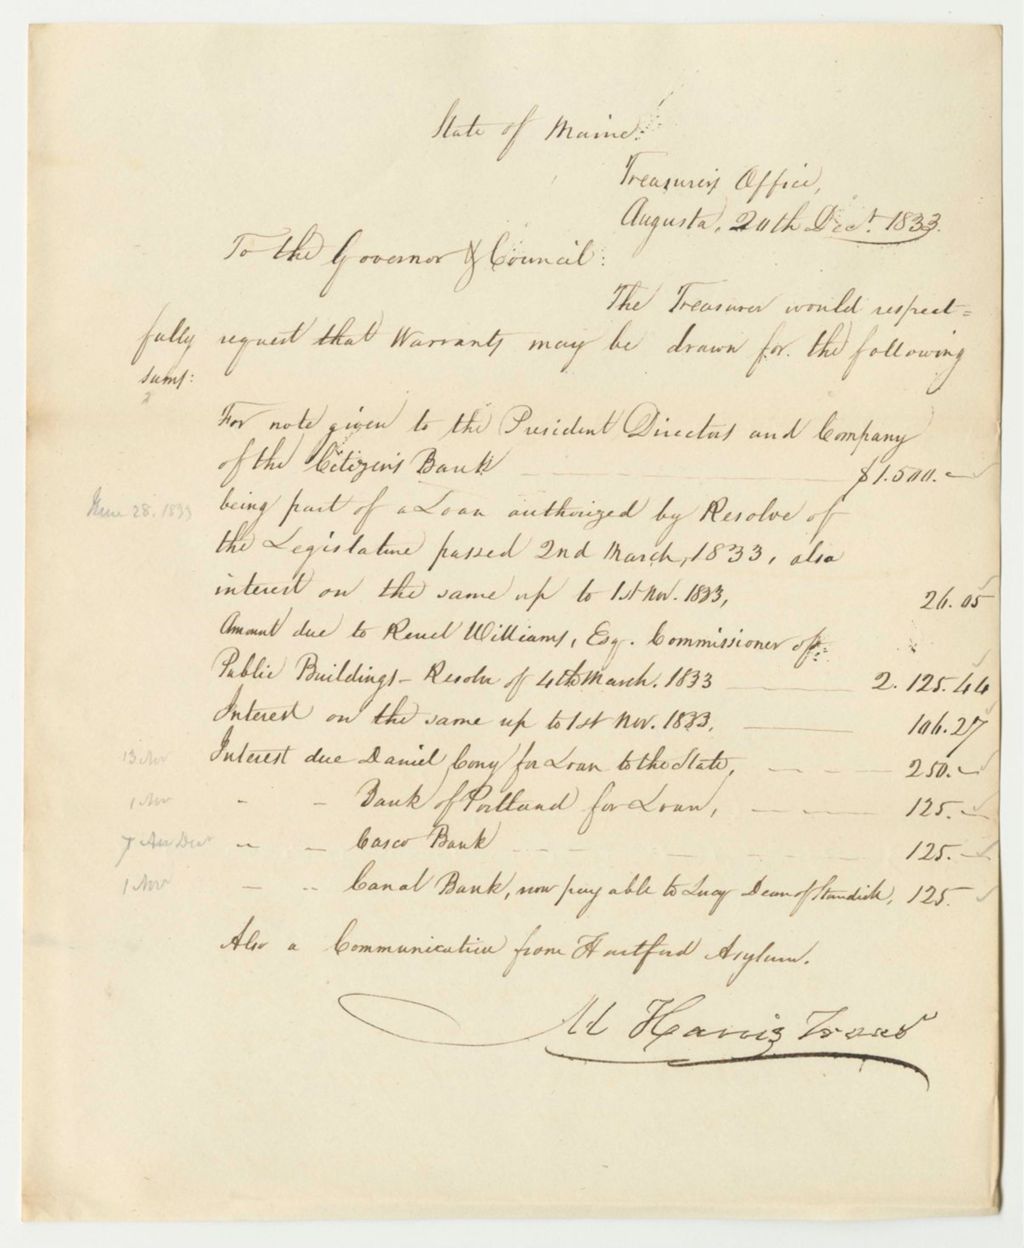 State of Maine.
Treasurer's Office,
Augusta, 20th Dect. 1833.
To the Governor & Council:
The Treasurer would respect=
fully request that Warrants may be drawn for the following
sums:
For note given to the President Directors and Company
of the Citizen's Bank $1.500.-
June 28. 1833 being part of a Loan authorized by Resolve of
the Legislature passed 2nd March, 1833, also
interest on the same up to 1st Nov. 1833, 26.05
Amount due to Reuel Williams, Esq. Commissioner of
Public Buildings - Resolve of 4th March. 1833 2.125.44
Interest on the same up to 1st Nov. 1833, 106.27
13 Nov Interest due Daniel Cony for Loan to the State, 250.-
1 Nov " " Bank of Portland for Loan, 125.-
7 Dec " " Casco Bank 125.-
1 Nov " " Canal Bank, now payable to Lucy Dean of Standish, 125.
Also a Communication from Hartford Asylum.
Harris Treasr